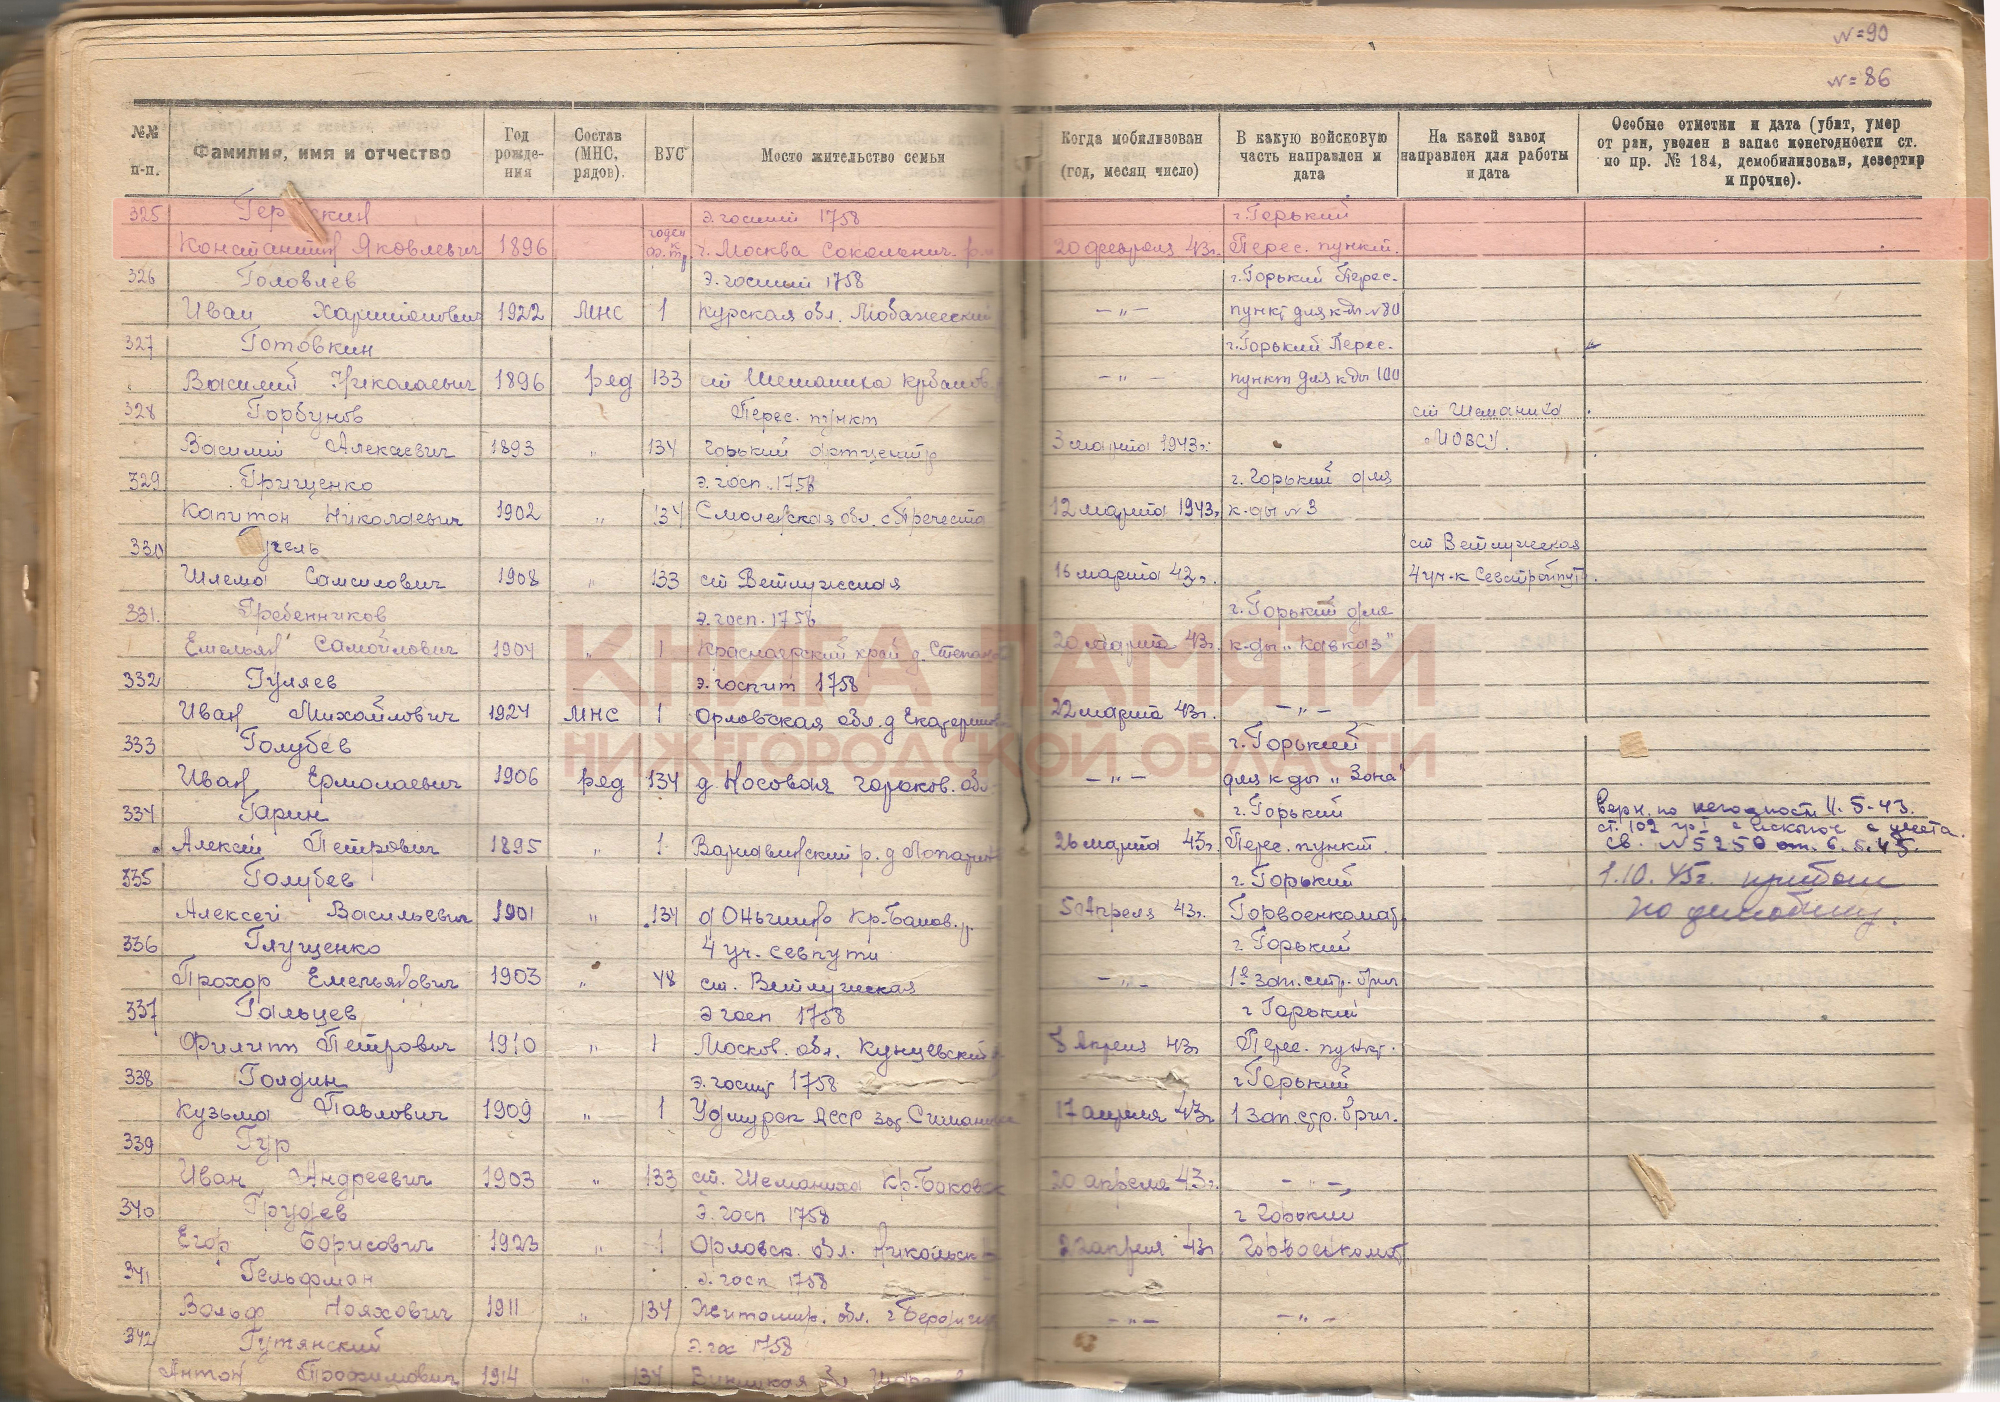 №=90
№=86
№№ п-п.
Фамилия, имя и отчество
Год рожде- ния
Состав (МНС, рядов).
ВУС
Место жительство семьи
Когда мобилизован (год, месяц число)
В какую войсковую часть направлен и дата
На какой завод направлен для работы и дата
Особые отметки и дата (убит, умер от ран, уволен в запас понегодности ст. по пр. № 184, демобилизован, дезертир и прочие).
325 э. госпит 1758 г. Горький
Константин Яковлевич 1896 годен к ф. тр. г. Москва Сокольнич. 20 февраля 43г. Перес. пункт.
326 Головлев э. госпит 1758 г. Горький Перес.
Иван Харитонович 1922 МНС 1 Курская обл. — " — пункт для к-ды №80
327 Готовкин г. Горький Перес.
Василий Николаевич 1896 ряд 133 ст Шеманиха крбаков. — " — пункт для к-ды 100
328 Горбунов Перес. пункт ст Шеманиха
Василий Алексеевич 1893 " 134 Горький 3 марта 1943г.
329 Грищенко э. госп. 1758 г. Горький для
Капитон Николаевич 1902 " 134 Смоленская обл. с. Пречиста 12 марта 1943г. к-ды №3
330 ст Ветлужская
Шлема Самилович 1908 " 133 ст Ветлужская 16 марта 43г. 4 уч-к Севстройпути
331. Гребенников э. госп. 1758 г. Горький для
Емельян Самойлович 1904 " 1 край д. 20 марта 43г. к-ды „Кавказ"
332 Гуляев э. госпит 1758
Иван Михайлович 1924 МНС 1 Орловская обл. д 22 марта 43г. — " —
333 Голубев г. Горький
Иван Ермолаевич 1906 ряд 134 д. Носовая горьков. обл. — " — для к-ды „Зона"
334 Гарин г. Горький верн. по негодност 11.5-43.
Алексей Петрович 1895 " 1 Варнавинский р. д 26 марта 43г. Перес. пункт. ст. 102
св. №5250 от. 6.5.43.
335 Голубев г. Горький 1.10.45г. прибыл
Алексей Васильевич 1901 " 134 д Кр-Баков. р. 5 Апреля 43г. Горвоенкомат по демобилиз.
336 Глущенко 4 уч. севпути г. Горький
Прохор Емельянович 1903 " 48 ст. Ветлужская — " — 1й зап. стр. бриг
337 Гальцев э госп 1758 г Горький
Филипп Петрович 1910 " 1 Москов. обл. Кунцевский 8 Апреля 43г Перес. пункт.
338 Голдин э. госпит 1758 г Горький
Кузьма Павлович 1909 " 1 Удмурск АССР 17 апреля 43г 1 зап. стр. бриг.
339 Гур
Иван Андреевич 1903 " 133 ст. Шеманиха Кр-Баковск 20 апреля 43г. — " —
340 э. госп 1758 г Горький
Егор Борисович 1923 " 1 Орловск. обл. Никольск 22 апреля 43г Горвоенкомат
341 Гельфман э. госп 1758
Вольф Нояхович 1911 " 134 Житомир. обл. г Бердичев — " — — " —
342 Гутянский э. гос 1758
Антон Трофимович 1914 " 134
КНИГА ПАМЯТИ
НИЖЕГОРОДСКОЙ ОБЛАСТИ